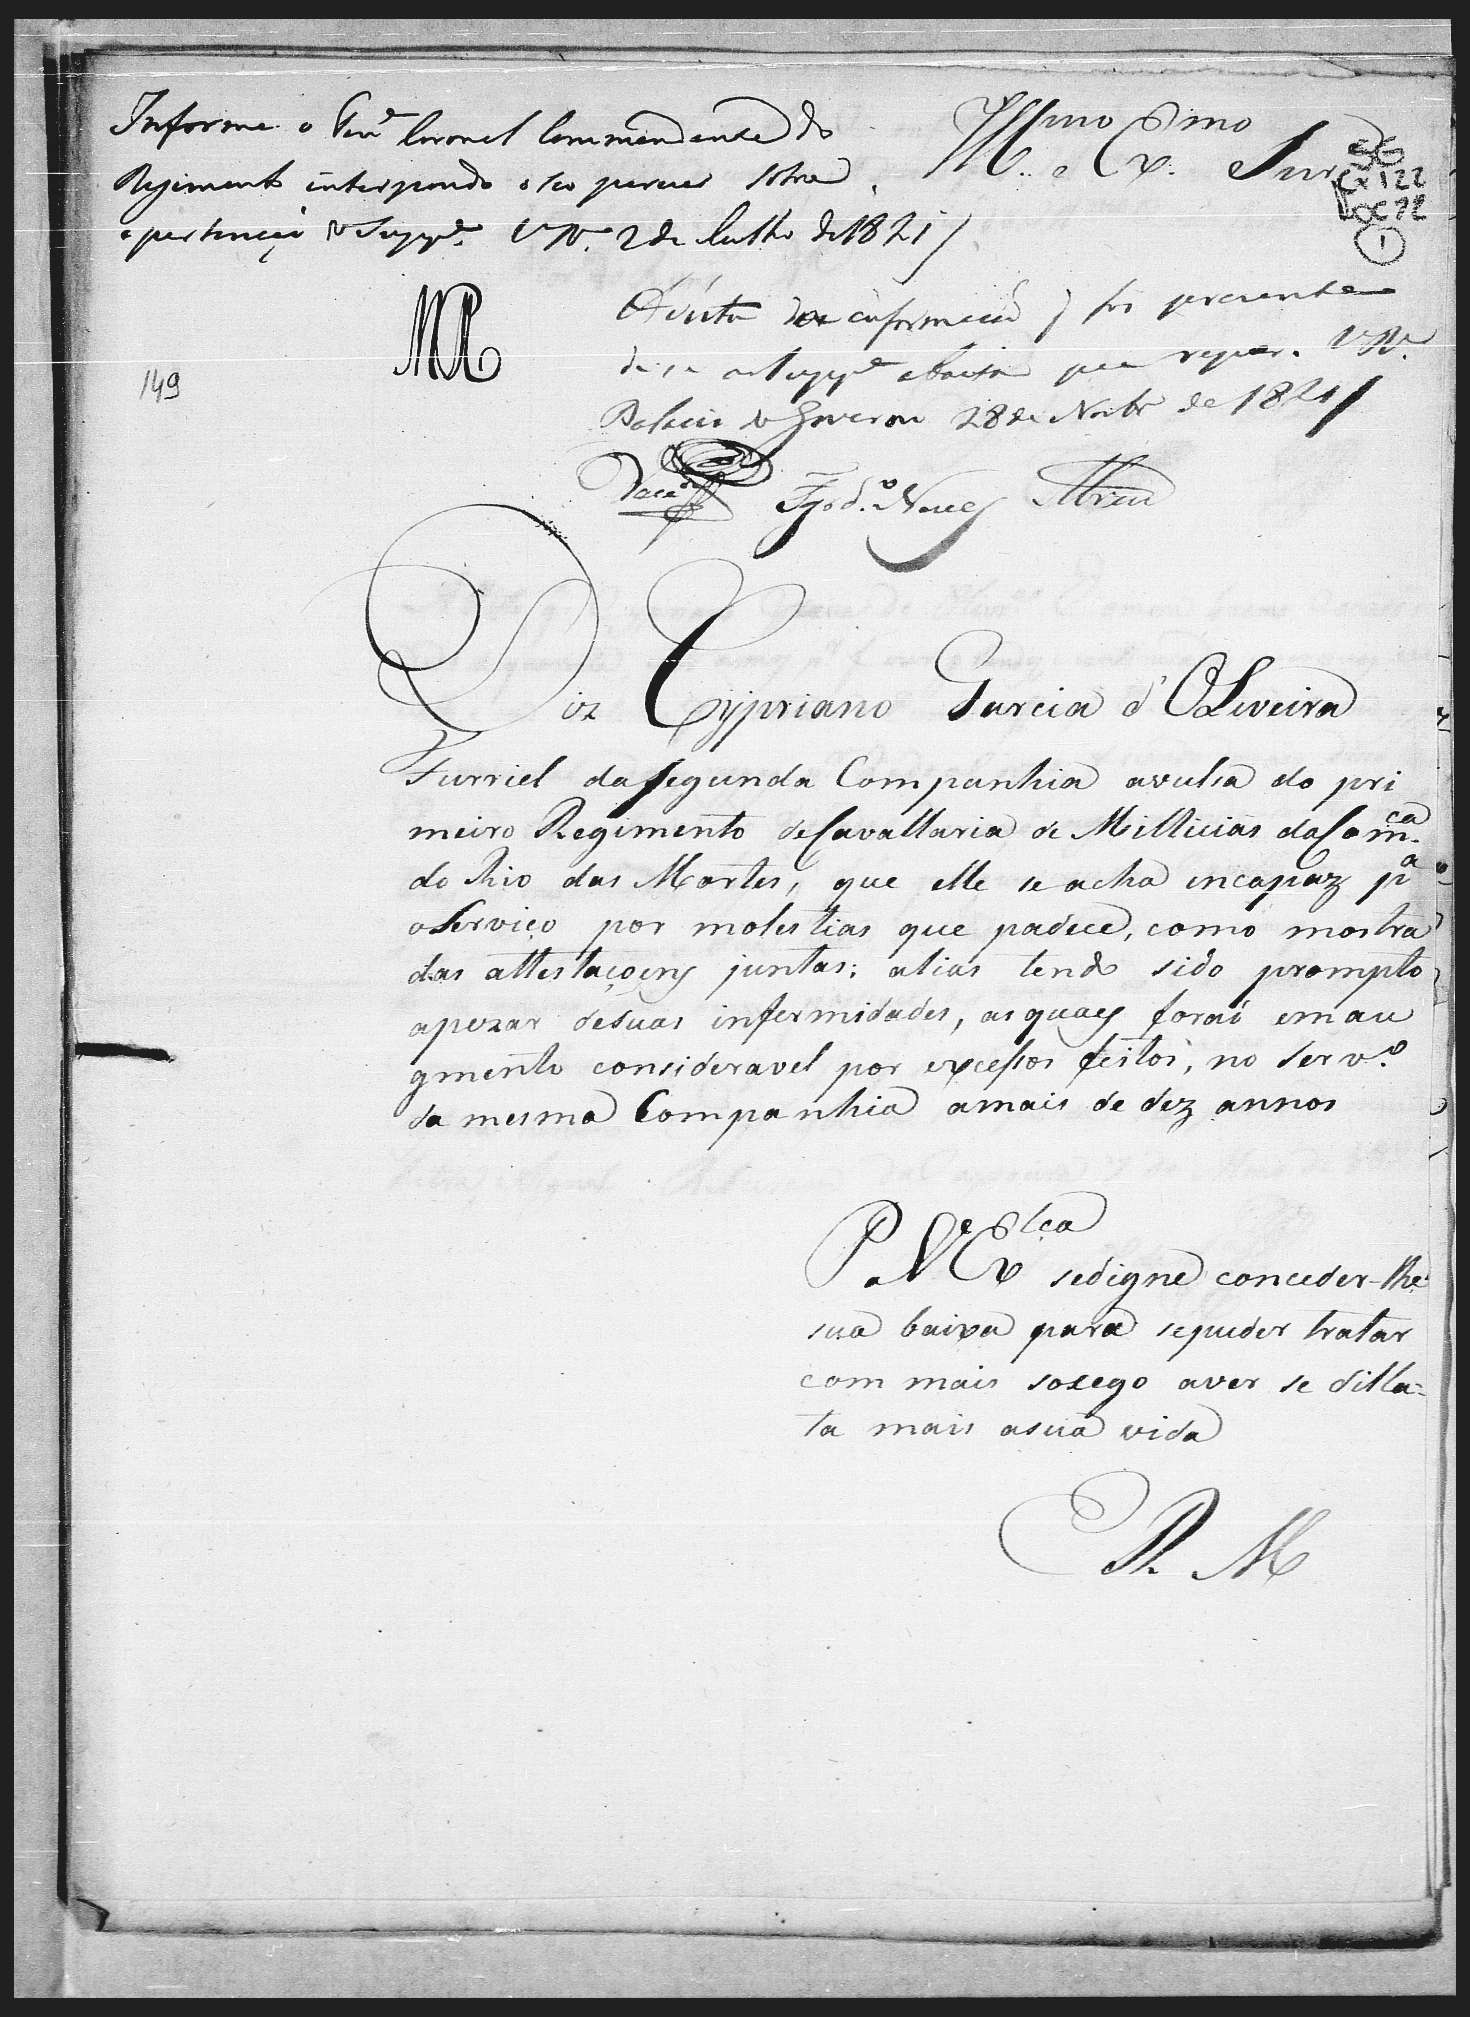 Informe o Ten.e Coronel Commandante do
Regimento interpondo o seo parecer sobre
a pertenção do Supp.e VR.a 2 de Julho de 1821
Illmo e Exmo Snr
SG
Cx 122
Doc 12
1
149
MR
Á vista da informação q foi presente
o Supp.e a baixa que requer. VR.a
Palacio do Governo 28 de Novbr de 1821
Neves Abreu
Diz Cypriano Garcia d'OLiveira
Furriel da segunda Companhia avulsa do pri
meiro Regimento de Cavallaria de Millicias da Com.ca
do Rio das Mortes, que elle se acha incapaz p.a
o Serviço por molestias que padece, como mostra
das attestaçoens juntas; alias tendo sido prompto
apezar de suas infermidades, as quaes forão em au
gmento consideravel por excessos feitos, no serv.o
da mesma Companhia a mais de dez annos
P. a V.e Ex.lca
se digne conceder-lhe
sua baixa para se puder tratar
com mais socego a ver se dilla-
ta mais a sua vida
E R. M